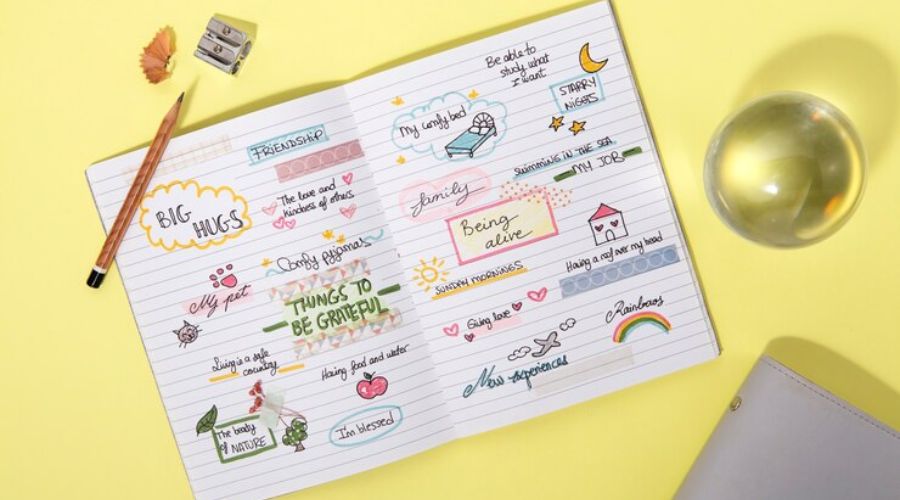 FRIENDSHIP
BIG
HUGS
The love and
kindness of others
Comfy pyjamas
My pet
THINGS TO
BE GRATEFUL
Living is a safe
country
Having food and water
The beaty
of NATURE
I'm blessed
Be able to
study what
I want
My comfy bed
STARRY
NIGHTS
SWIMMING IN THE SEA
MY JOB
family
Being
alive
SUNDAY MORNINGS
Having a roof over my head
Giving love
Rainbows
New experiences